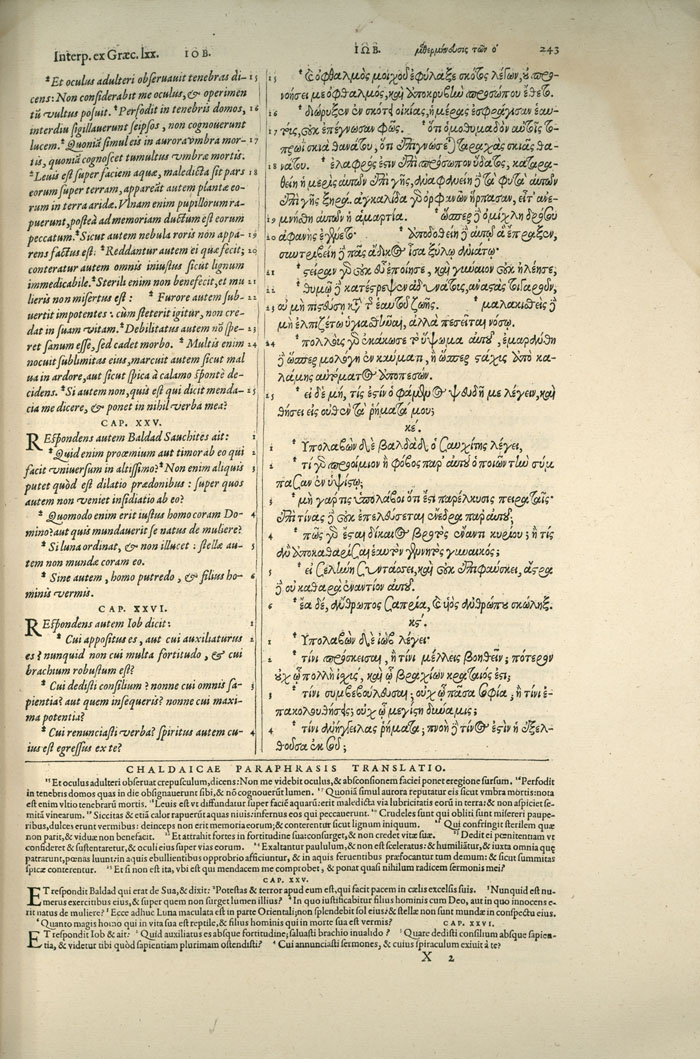 Interp. ex Græc. lxx. IOB.
ΙΩΒ. μεθερμήνευσις τῶν ο΄ 243
*Et oculus adulteri obseruauit tenebras di- 15
cens: Non considerabit me oculus, & operimen
tũ vultus posuit. *Perfodit in tenebris domos, 16
interdiu sigillauerunt seipsos, non cognouerunt
lucem. *Quoniã simul eis in aurora vmbra mor- 17
tis, quoniã cognoscet tumultus vmbræ mortis.
*Leuis est super faciem aquæ, maledicta sit pars 18
eorum super terram, appareãt autem plantæ eo-
rum in terra aridæ. Vlnam enim pupillorum ra-
puerunt, posteà ad memoriam ductum est eorum
peccatum. *Sicut autem nebula roris non appa- 19
rens factus est: *Reddantur autem ei quæ fecit; 20
conteratur autem omnis iniustus sicut lignum
immedicabile. *Sterili enim non benefecit, et mu 21
lieris non misertus est: *Furore autem sub- 22
uertit impotentes: cùm steterit igitur, non cre-
dat in suam vitam. *Debilitatus autem nõ spe- 23
ret sanum esse, sed cadet morbo. *Multis enim 24
nocuit sublimitas eius, marcuit autem sicut mal
ua in ardore, aut sicut spica à calamo spontè de-
cidens. *Si autem non, quis est qui dicit menda- 25
cia me dicere, & ponet in nihil verba mea?
CAP. XXV.
REspondens autem Baldad Sauchites ait: 1
*Quid enim proœmium aut timor ab eo qui 2
facit vniuersum in altissimo? *Non enim aliquis 3
putet quòd est dilatio prædonibus: super quos
autem non veniet insidiatio ab eo?
*Quomodo enim erit iustus homo coram Do- 4
mino? aut quis mundauerit se natus de muliere?
*Si luna ordinat, & non illucet: stellæ au- 5
tem non mundæ coram eo.
*Sine autem, homo putredo, & filius ho- 6
minis vermis.
CAP. XXVI.
REspondens autem Iob dicit: 1
*Cui appositus es, aut cui auxiliaturus 2
es? nunquid non cui multa fortitudo, & cui
brachium robustum est?
*Cui dedisti consilium? nonne cui omnis sa- 3
pientia? aut quem insequeris? nonne cui maxi-
ma potentia?
*Cui renunciasti verba? spiritus autem cu- 4
ius est egressus ex te?
15 *Καὶ ὀφθαλμὸς μοιχοῦ ἐφύλαξε σκότος λέγων, οὐ προ-
νοήσει με ὀφθαλμὸς, καὶ ἀποκρυβὴν προσώπου ἔθετο.
16 *διώρυξεν ἐν σκότει οἰκίας, ἡμέρας ἐσφράγισαν ἑαυ-
17 τοὺς, οὐκ ἐπέγνωσαν φῶς. *ὅτι ὁμοθυμαδὸν αὐτοῖς το-
πρωῒ σκιὰ θανάτου, ὅτι ἐπιγνώσεται ταραχὰς σκιᾶς θα-
18 νάτου. *ἐλαφρός ἐστιν ἐπὶ πρόσωπον ὕδατος, καταρα-
θείη ἡ μερὶς αὐτῶν ἐπὶ γῆς, ἀναφανείη δὲ τὰ φυτὰ αὐτῶν
ἐπὶ γῆς ξηρά. ἀγκαλίδα γὰρ ὀρφανῶν ἥρπασαν, εἶτ' ἀνε-
19 μνήσθη αὐτῶν ἡ ἁμαρτία. *ὥσπερ δὲ ὁμίχλη δρόσου
20 ἀφανὴς ἐγένετο. *ἀποδοθείη δὲ αὐτῷ ἃ ἔπραξεν,
συντριβείη δὲ πᾶς ἄδικος ἴσα ξύλῳ ἀνιάτῳ.
21 *στεῖραν γὰρ οὐκ εὖ ἐποίησε, καὶ γύναιον οὐκ ἠλέησε,
22 *θυμῷ δὲ κατέστρεψεν ἀδυνάτοις, ἀναστὰς τοιγαροῦν,
23 οὐ μὴ πιστεύσῃ κατὰ τῆς ἑαυτοῦ ζωῆς. *μαλακισθεὶς δὲ
μὴ ἐλπιζέτω ὑγιασθῆναι, ἀλλὰ πεσεῖται νόσῳ.
24 *πολλοὺς γὰρ ἐκάκωσε τὸ ὕψωμα αὐτοῦ, ἐμαράνθη
δὲ ὥσπερ μολόχη ἐν καύματι, ἢ ὥσπερ στάχυς ἀπὸ κα-
λάμης αὐτόματος ἀποπεσών.
25 *εἰ δὲ μὴ, τίς ἐστιν ὁ φάμενος ψευδῆ με λέγειν, καὶ
θήσει εἰς οὐθὲν τὰ ῥήματά μου;
κε.
1 *Ὑπολαβὼν δὲ βαλδὰδ ὁ Σαυχίτης λέγει,
2 *τί γὰρ προοίμιον ἢ φόβος παρ' αὐτοῦ ὁ ποιῶν τὴν σύμ
πασαν ἐν ὑψίστῳ;
3 *μὴ γάρ τις ὑπολάβοι ὅτι ἐστὶ παρέλκυσις πειραταῖς·
ἐπὶ τίνας δὲ οὐκ ἐπελεύσεται ἔνεδρα παρ' αὐτοῦ;
4 *πῶς γὰρ ἔσται δίκαιος βροτὸς ἔναντι κυρίου; ἢ τίς
ἂν ἀποκαθαρίσαι ἑαυτὸν γεννητὸς γυναικός;
5 *εἰ σελήνη συντάσσει, καὶ οὐκ ἐπιφαύσκει, ἄστρα
δὲ οὐ καθαρὰ ἐναντίον αὐτοῦ.
6 *ἔα δὲ, ἄνθρωπος σαπρία, καὶ υἱὸς ἀνθρώπου σκώληξ.
κϛ.
1 *Ὑπολαβὼν δὲ ἰὼβ λέγει·
2 *τίνι πρόσκεισαι, ἢ τίνι μέλλεις βοηθεῖν; πότερον
οὐχ ᾧ πολλὴ ἰσχὺς, καὶ ᾧ βραχίων κραταιός ἐστι;
3 *τίνι συμβεβούλευσαι; οὐχ ᾧ πᾶσα σοφία; ἢ τίνι ἐ-
πακολουθήσεις; οὐχ ᾧ μεγίστη δύναμις;
4 *τίνι ἀνήγγειλας ῥήματα; πνοὴ δὲ τίνος ἐστὶν ἡ ἐξελ-
θοῦσα ἐκ σοῦ;
CHALDAICAE PARAPHRASIS TRANSLATIO.
15 Et oculus adulteri obseruat crepusculum, dicens: Non me videbit oculus, & absconsionem faciei ponet eregione sursum. 16 Perfodit
in tenebris domos quas in die obsignauerunt sibi, & nõ cognouerũt lumen. 17 Quoniã simul aurora reputatur eis sicut vmbra mortis: nota
est enim vltio tenebrarũ mortis. 18 Leuis est vt diffundatur super faciẽ aquarũ: erit maledicta via lubricitatis eorũ in terra: & non aspiciet se-
mitã vinearum. 19 Siccitas & etiã calor rapuerũt aquas niuis: infernus eos qui peccauerunt. 20 Crudeles sunt qui obliti sunt misereri paupe-
ribus, dulces erunt vermibus: deinceps non erit memoria eorum; & conteretur sicut lignum iniquum. 21 Qui confringit sterilem quæ
non parit, & viduæ non benefacit. 22 Et attrahit fortes in fortitudine sua: consurget, & non credet vitæ suæ. 23 Dedit ei pœnitentiam vt
consideret & sustentaretur, & oculi eius super vias eorum. 24 Exaltantur paululum, & non est sceleratus: & humiliãtur, & iuxta omnia quę
patrarunt, pœnas luunt: in aquis ebullientibus opprobrio afficiuntur, & in aquis feruentibus præfocantur tum demum: & sicut summitas
spicæ conterentur. 25 Et si non est ita, vbi est qui mendacem me comprobet, & ponat quasi nihilum radicem sermonis mei?
CAP. XXV.
ET respondit Baldad qui erat de Sua, & dixit: 2 Potestas & terror apud eum est, qui facit pacem in cælis excelsis suis. 3 Nunquid est nu-
merus exercitibus eius, & super quem non surget lumen illius? 4 In quo iustificabitur filius hominis cum Deo, aut in quo innocens e-
rit natus de muliere? 5 Ecce adhuc Luna maculata est in parte Orientali; non splendebit sol eius; & stellæ non sunt mundæ in conspectu eius.
6 Quanto magis homo qui in vita sua est reptile, & filius hominis qui in morte sua est vermis? CAP. XXVI.
ET respondit Iob & ait: 2 Quid auxiliatus es absque fortitudine; saluasti brachio inualido? 3 Quare dedisti consilium absque sapien-
tia, & videtur tibi quòd sapientiam plurimam ostendisti? 4 Cui annunciasti sermones, & cuius spiraculum exiuit à te?
X 2